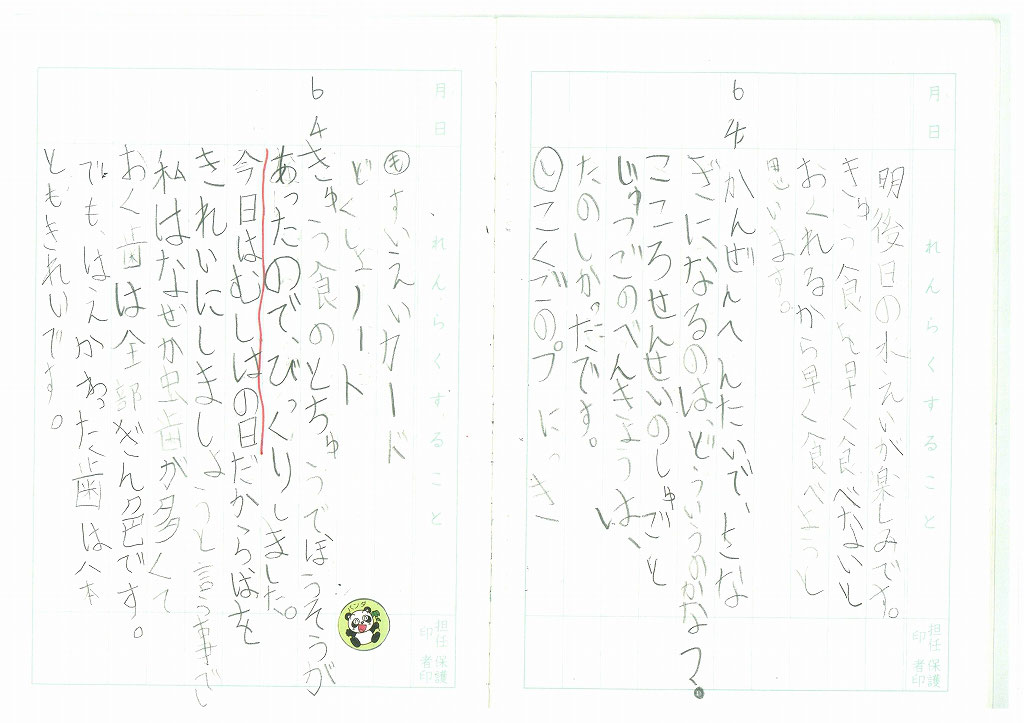 月 日
れんらくすること
担任印
保護者印
明後日の水えいが楽しみです。
きゅう食を早く食べないと
おくれるから早く食べようと
思います。
6 4
かんぜんへんたいで、とな
ぎになるのは、どういうのかな?
こころせんせいのしゅごと
じゅつごのべんきょうは、
たのしかっだです。
し こくごのプ にっき
月 日
れんらくすること
担任印
保護者印
も すいえいカード
どくしょノート
6 4
きゅう食のとちゅうでほうそうが
あったので、びっくりしました。
今日はむしはの日だからはを
きれいにしましょうと言う事で
私はなぜか虫歯が多くて
おく歯は全部ぎん色です。
でも、はえかわった歯は八本
ともきれいです。
パンダ